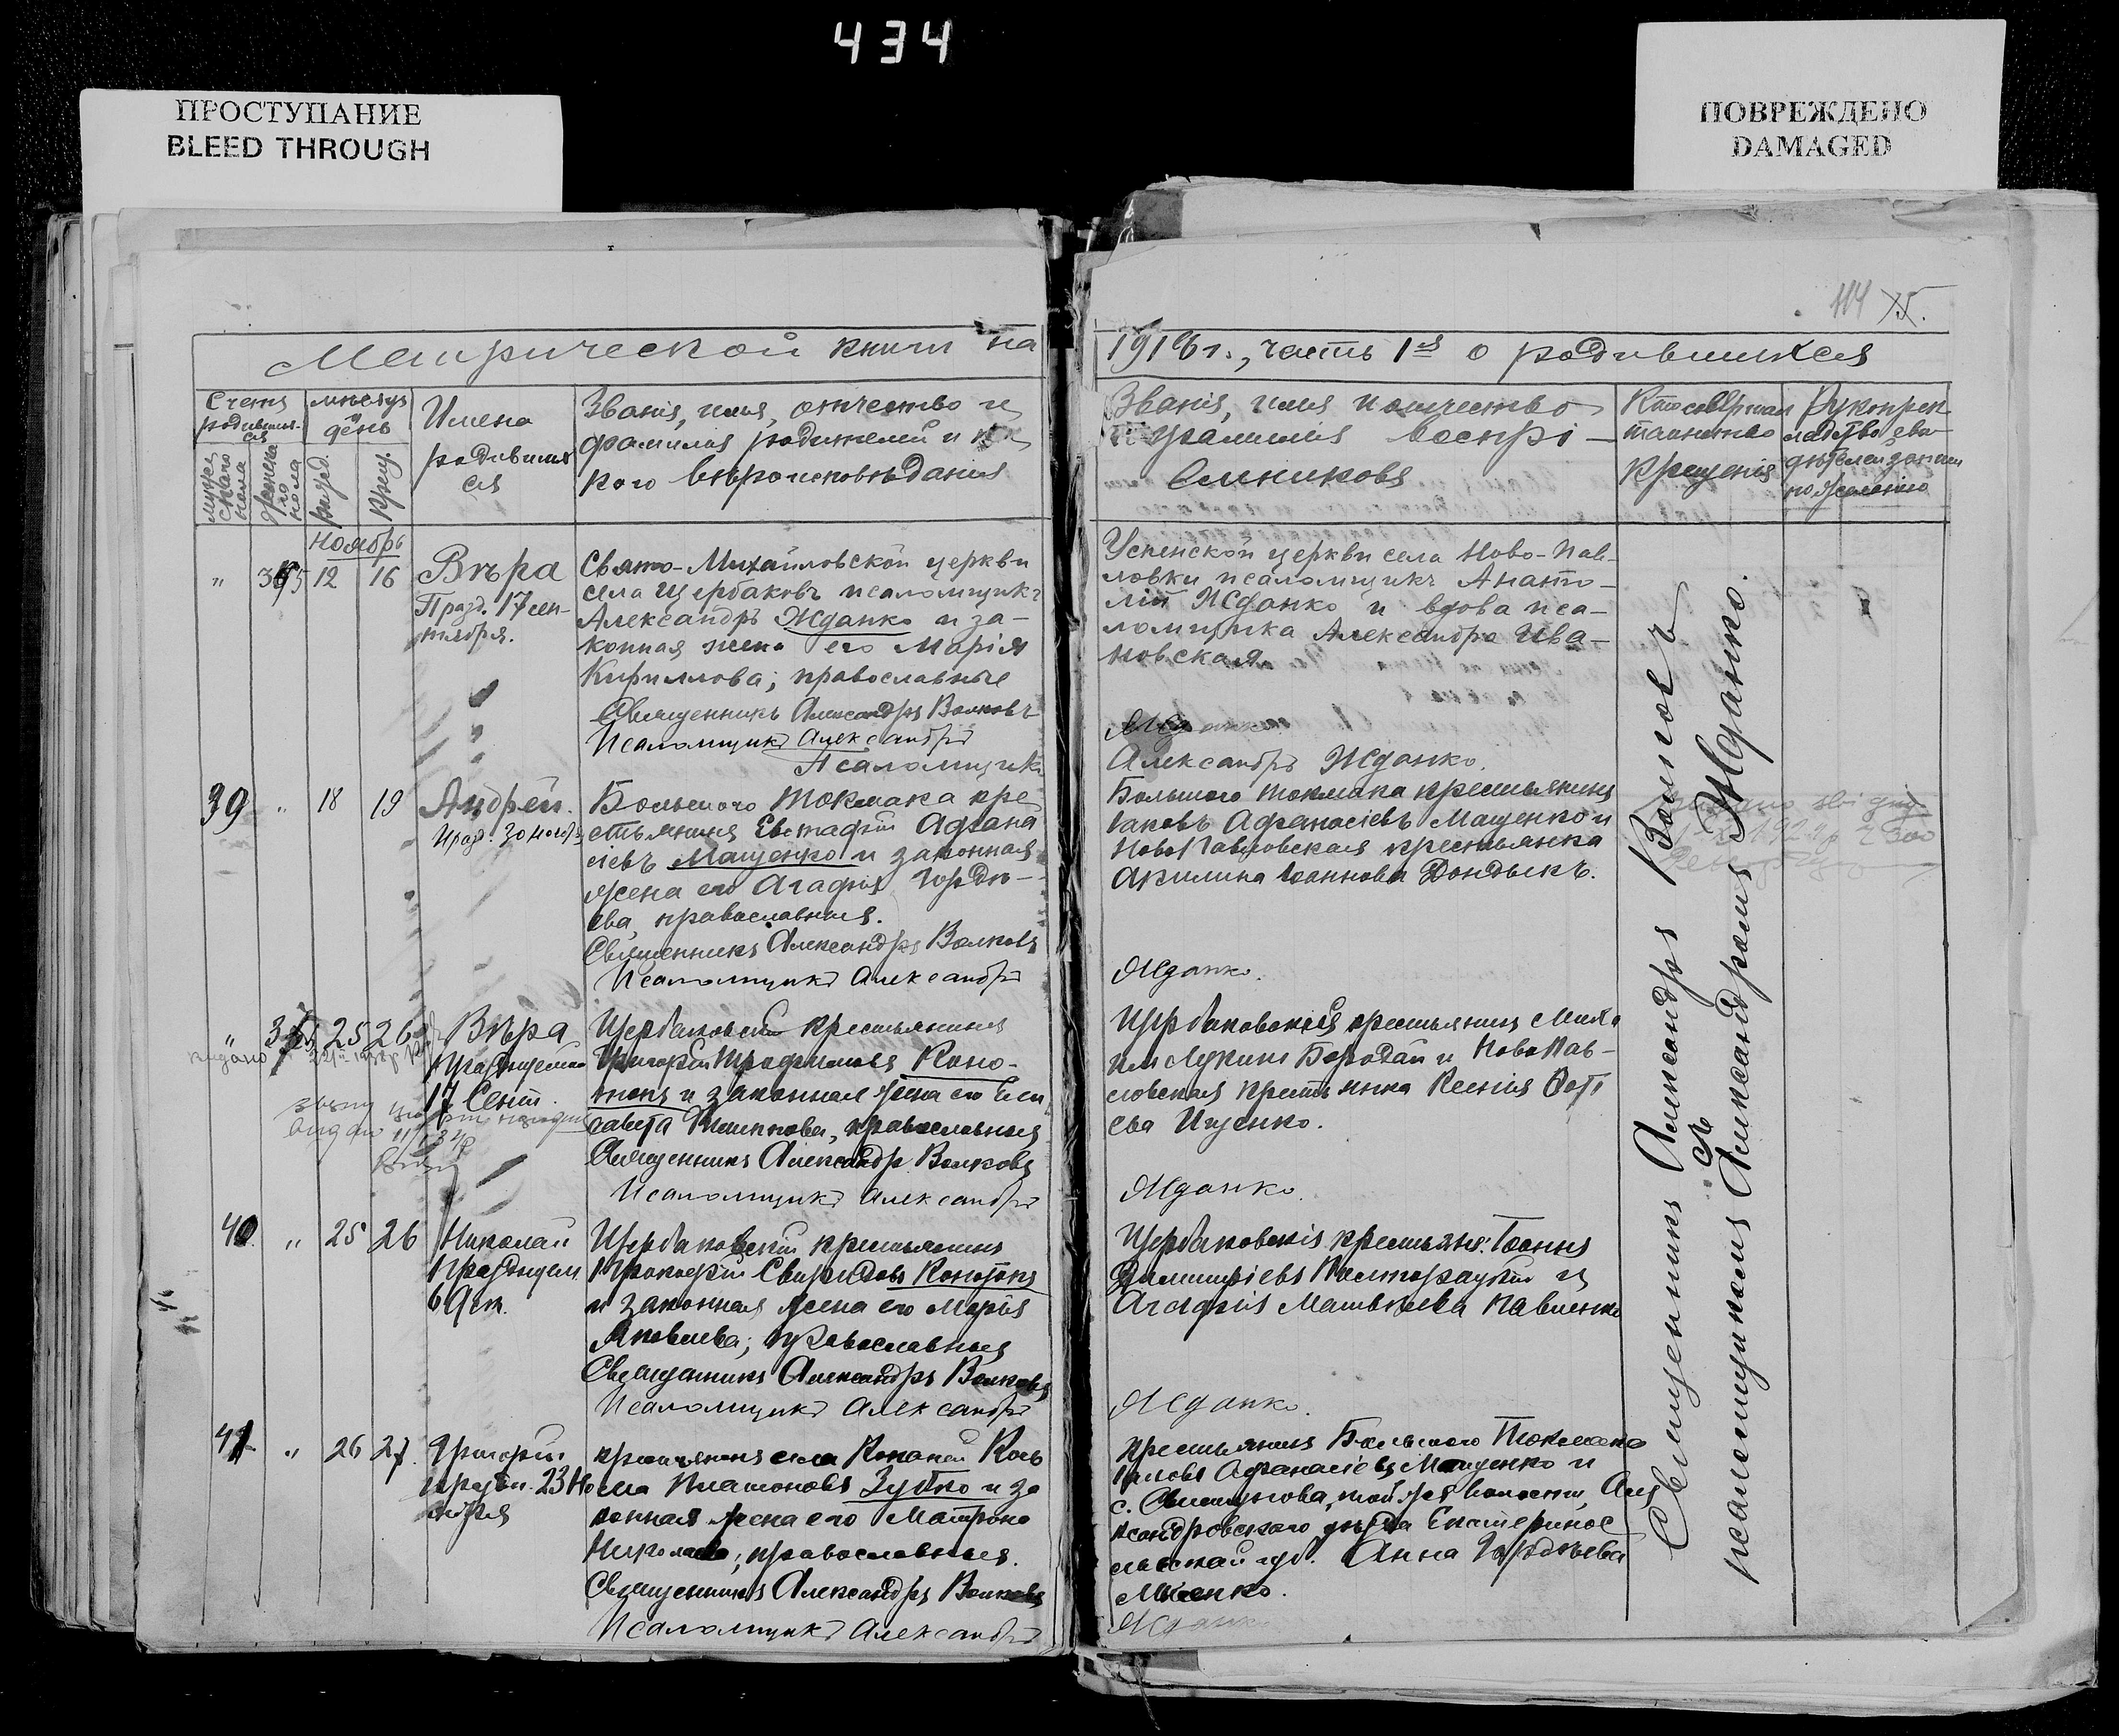 434
ПРОСТУПАНИЕ
BLEED THROUGH
ПОВРЕЖДЕНО
DAMAGED
114
Метрической книги на
1916 г., часть 1я о родившихся
Счетъ родивших-ся
мужеска пола
женска го пола
мѣсяцъ и день
рожд.
крещ.
Имена
родивших
ся
Званіе, имя, отчество и
фамилия родителей и ка
кого вѣроисповѣдания
Званіе, имя и отчество
и фамилия воспрі-
емниковъ
Кто совершал
таинство
крещенія
Рукоприк
ладство сви
дѣтелей записи
по желанію
Ноябрь
" 35 12 16 Вѣра
Празд. 17 сен-
тября.
Свято-Михайловской церкви
села Щербаковъ псаломщикъ
Александръ Жданко и за-
конная жена его Марія
Кириллова; православные
Священникъ Александръ Волковъ
Псаломщикъ Александръ
Псаломщикъ
Успенской церкви села Ново-Пав-
ловки псаломщикъ Анато-
лій Жданко и вдова пса-
ломщика Александра Ива-
новская.
Жданко
Александръ Жданко.
39 " 18 19 Андрей.
Празд. 30 нояб.
Большого Токмака кре
стьянинъ Евстафій Афана
сіевъ Мащенко и законная
жена его Агафія Горді-
ева, православныя.
Священникъ Александръ Волковъ
Псаломщикъ Александръ
Большого Токмака крестьянинъ
Іаковъ Афанасіевъ Мащенко и
Ново Павловская крестьянка
Акилина Іоаннова Дондыкъ.
Жданко.
" 25 26 Вѣра
Празднуется
17 Сент.
Щербаковскій крестьянинъ
Григорій Трофимовъ Коно-
топъ и законная жена его Ели
савета, православныя
Священникъ Александръ Волковъ
Псаломщикъ Александръ
Щербаковскій крестьянинъ Миха
илъ Лукинъ Бородай и НовоПав-
ловская крестьянка Ксенія Фоті
ева Ищенко.
Жданко.
40. " 25 26 Николай
Празднуем.
6 Дек.
Щербаковскій крестьянинъ
Прокофій Свиридовъ Конотопъ
и законная жена его Марія
Яковлева; православныя
Священникъ Александръ Волковъ
Псаломщикъ Александръ
Щербаковскіе крестьяне: Іоаннъ
Димитріевъ Полторацкій и
Агафія Матвѣева Павленко
Жданко.
41 " 26 27. Григорій
Праздн. 23 Но
ября
крестьянинъ села Копаней Козь
ма Платоновъ Зубко и за
конная жена его Матрона
Николаева; православныя.
Священникъ Александръ Волковъ
Псаломщикъ Александръ
крестьянинъ Большого Токмака
Іаковъ Афанасіевъ Мащенко и
той же волости, Але
ксандровского уѣзда Екатеринос
лавской губ. Анна Гордѣева
Жданко
Священникъ Александръ Волковъ
съ
псаломщикомъ Александромъ Жданко.